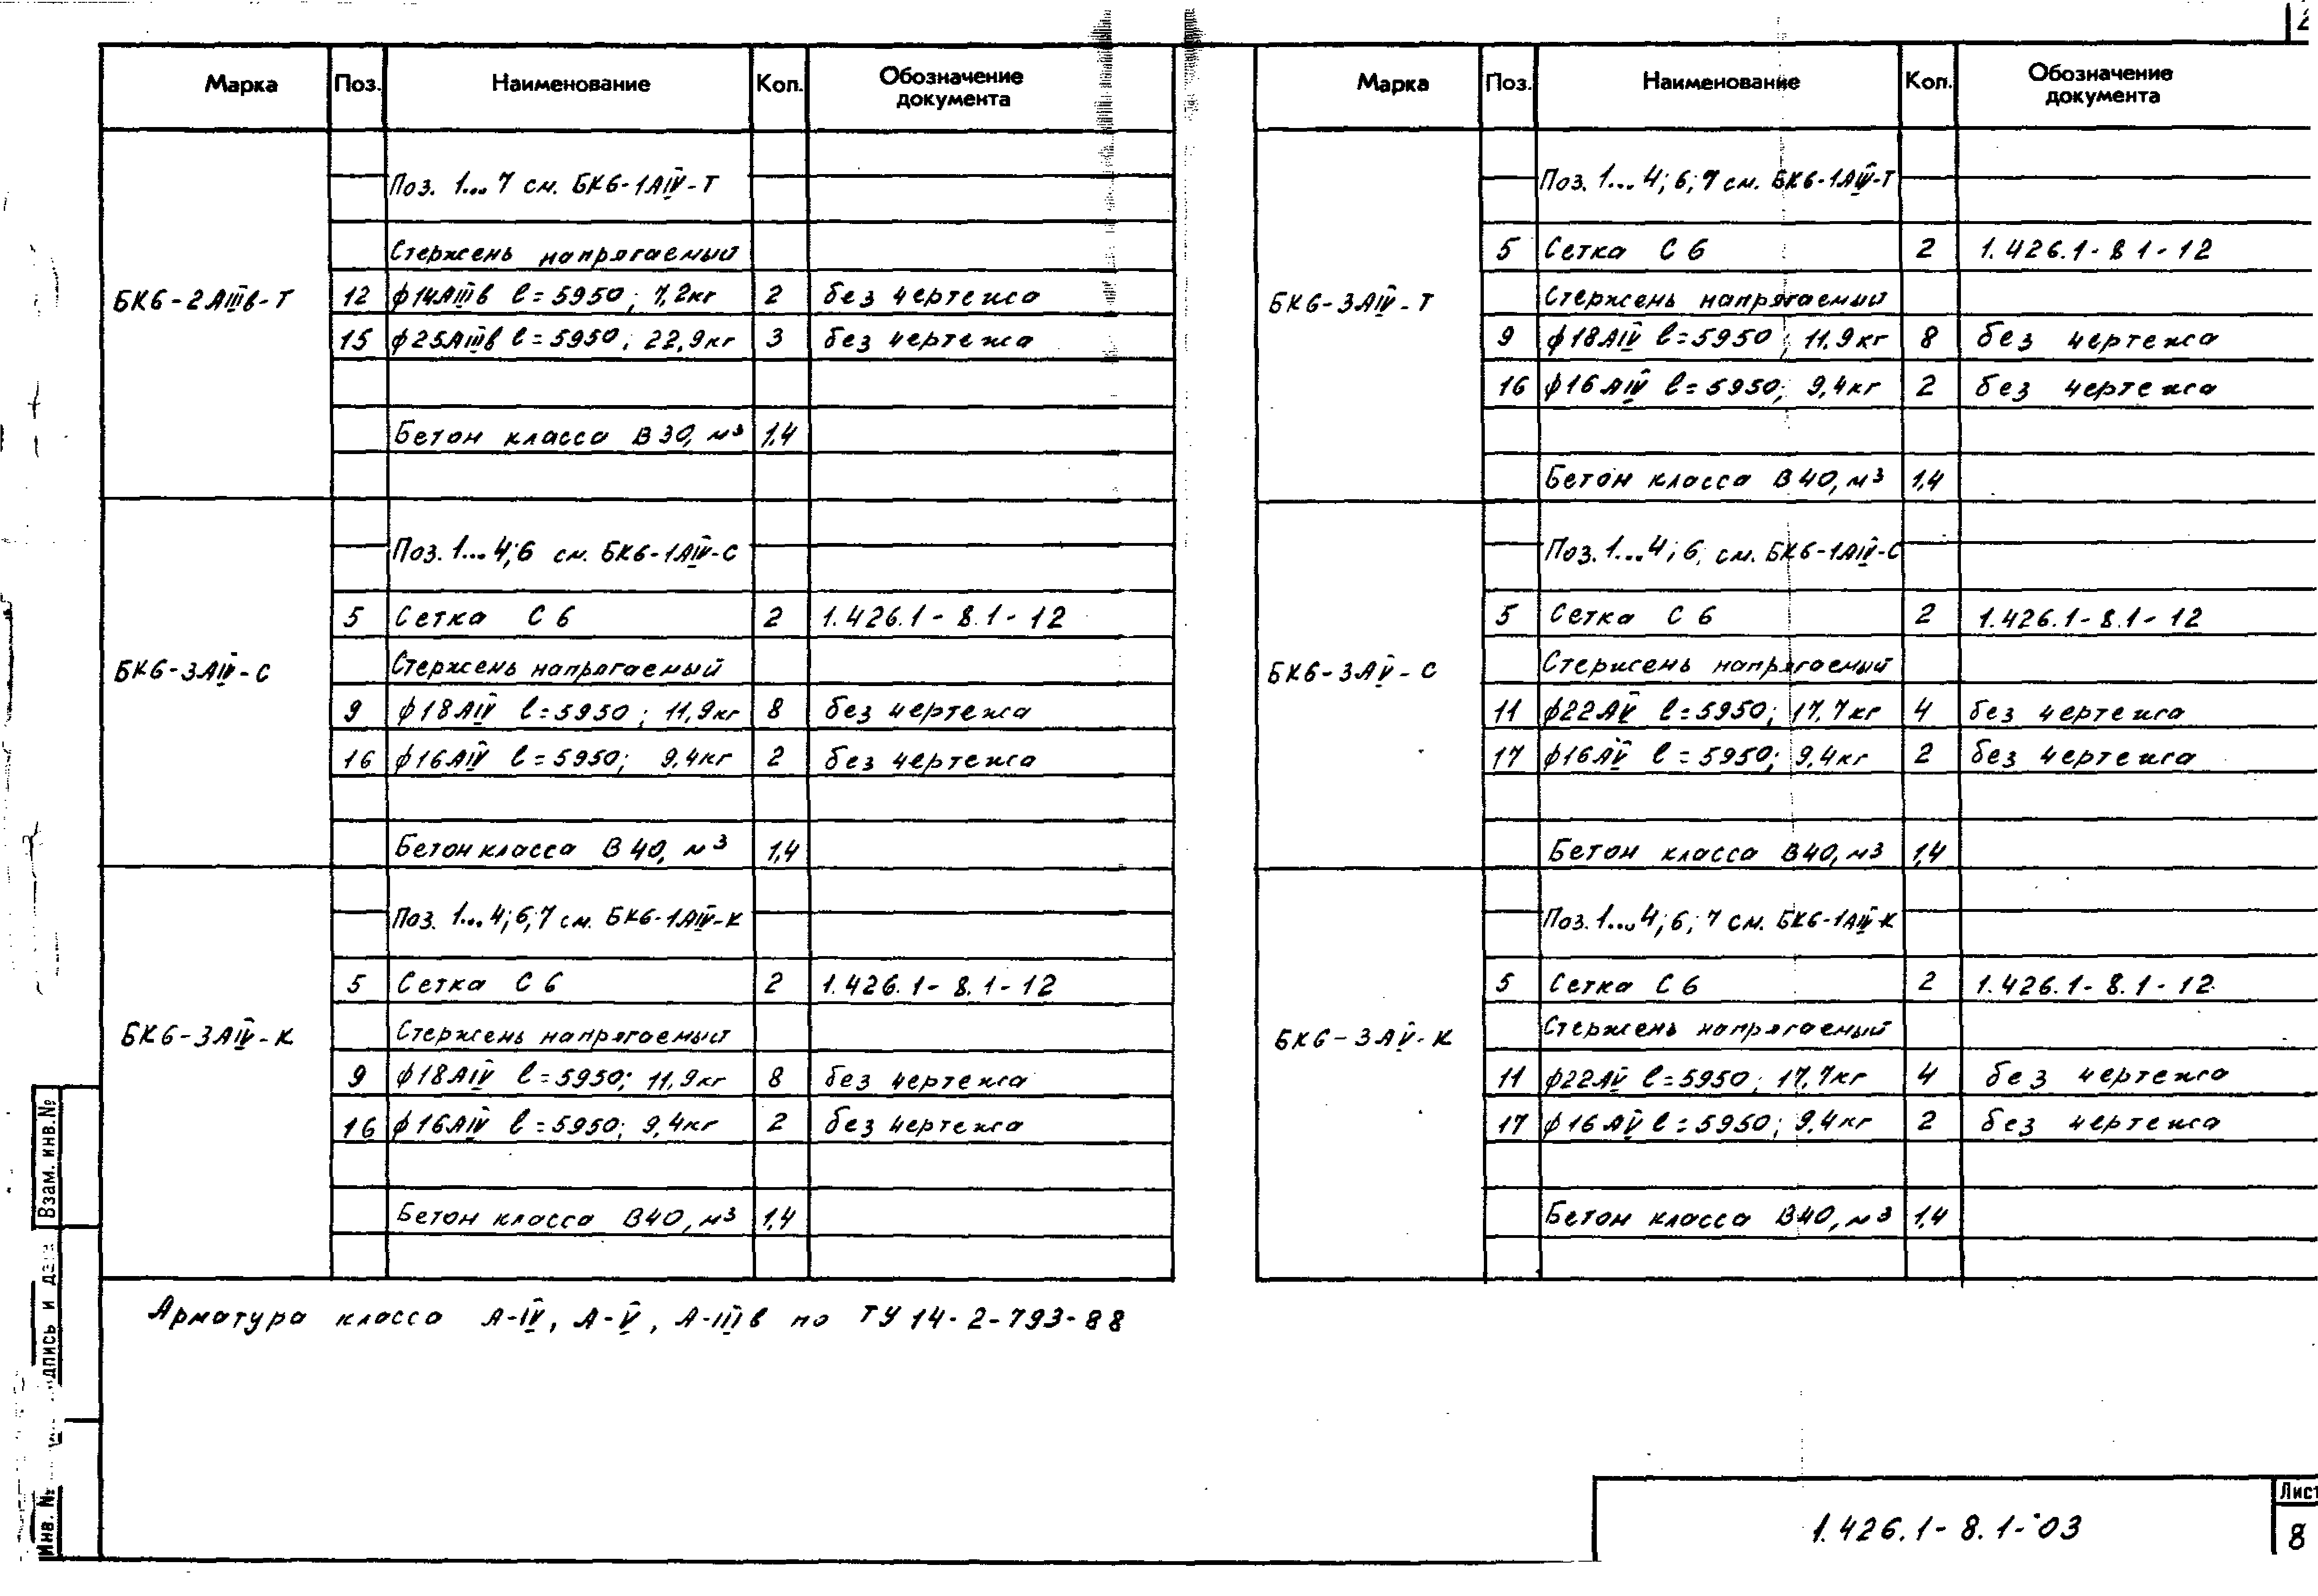 Марка Поз. Наименование Кол. Обозначение документа
Поз. 1...7 см. БК6-1АIV-Т
Стержень напрягаемый
БК6-2АIIIв-Т 12 ф14АIIIв l=5950; 7,2кг 2 без чертежа
15 ф25АIIIв l=5950; 22,9кг 3 без чертежа
Бетон класса В30, м³ 1,4
Поз. 1...4;6 см. БК6-1АIV-С
5 Сетка С6 2 1.426.1-8.1-12
БК6-3АIV-С Стержень напрягаемый
9 ф18АIV l=5950; 11,9кг 8 без чертежа
16 ф16АIV l=5950; 9,4кг 2 без чертежа
Бетон класса В40, м³ 1,4
Поз. 1...4;6;7 см. БК6-1АIV-К
5 Сетка С6 2 1.426.1-8.1-12
БК6-3АIV-К Стержень напрягаемый
9 ф18АIV l=5950; 11,9кг 8 без чертежа
16 ф16АIV l=5950; 9,4кг 2 без чертежа
Бетон класса В40, м³ 1,4
Марка Поз. Наименование Кол. Обозначение документа
Поз. 1...4;6;7 см. БК6-1АIV-Т
5 Сетка С6 2 1.426.1-8.1-12
БК6-3АIV-Т Стержень напрягаемый
9 ф18АIV l=5950; 11,9кг 8 без чертежа
16 ф16АIV l=5950; 9,4кг 2 без чертежа
Бетон класса В40, м³ 1,4
Поз. 1...4;6; см. БК6-1АIV-С
5 Сетка С6 2 1.426.1-8.1-12
БК6-3АV-С Стержень напрягаемый
11 ф22АV l=5950; 17,7кг 4 без чертежа
17 ф16АV l=5950; 9,4кг 2 без чертежа
Бетон класса В40, м³ 1,4
Поз. 1...4;6;7 см. БК6-1АIV-К
5 Сетка С6 2 1.426.1-8.1-12
БК6-3АV-К Стержень напрягаемый
11 ф22АV l=5950; 17,7кг 4 без чертежа
17 ф16АV l=5950; 9,4кг 2 без чертежа
Бетон класса В40, м³ 1,4
Арматура класса А-IV, А-V, А-IIIв по ТУ 14-2-793-88
Взам. инв.№
дпись и дата
Инв. №
1.426.1-8.1-03
Лист
8